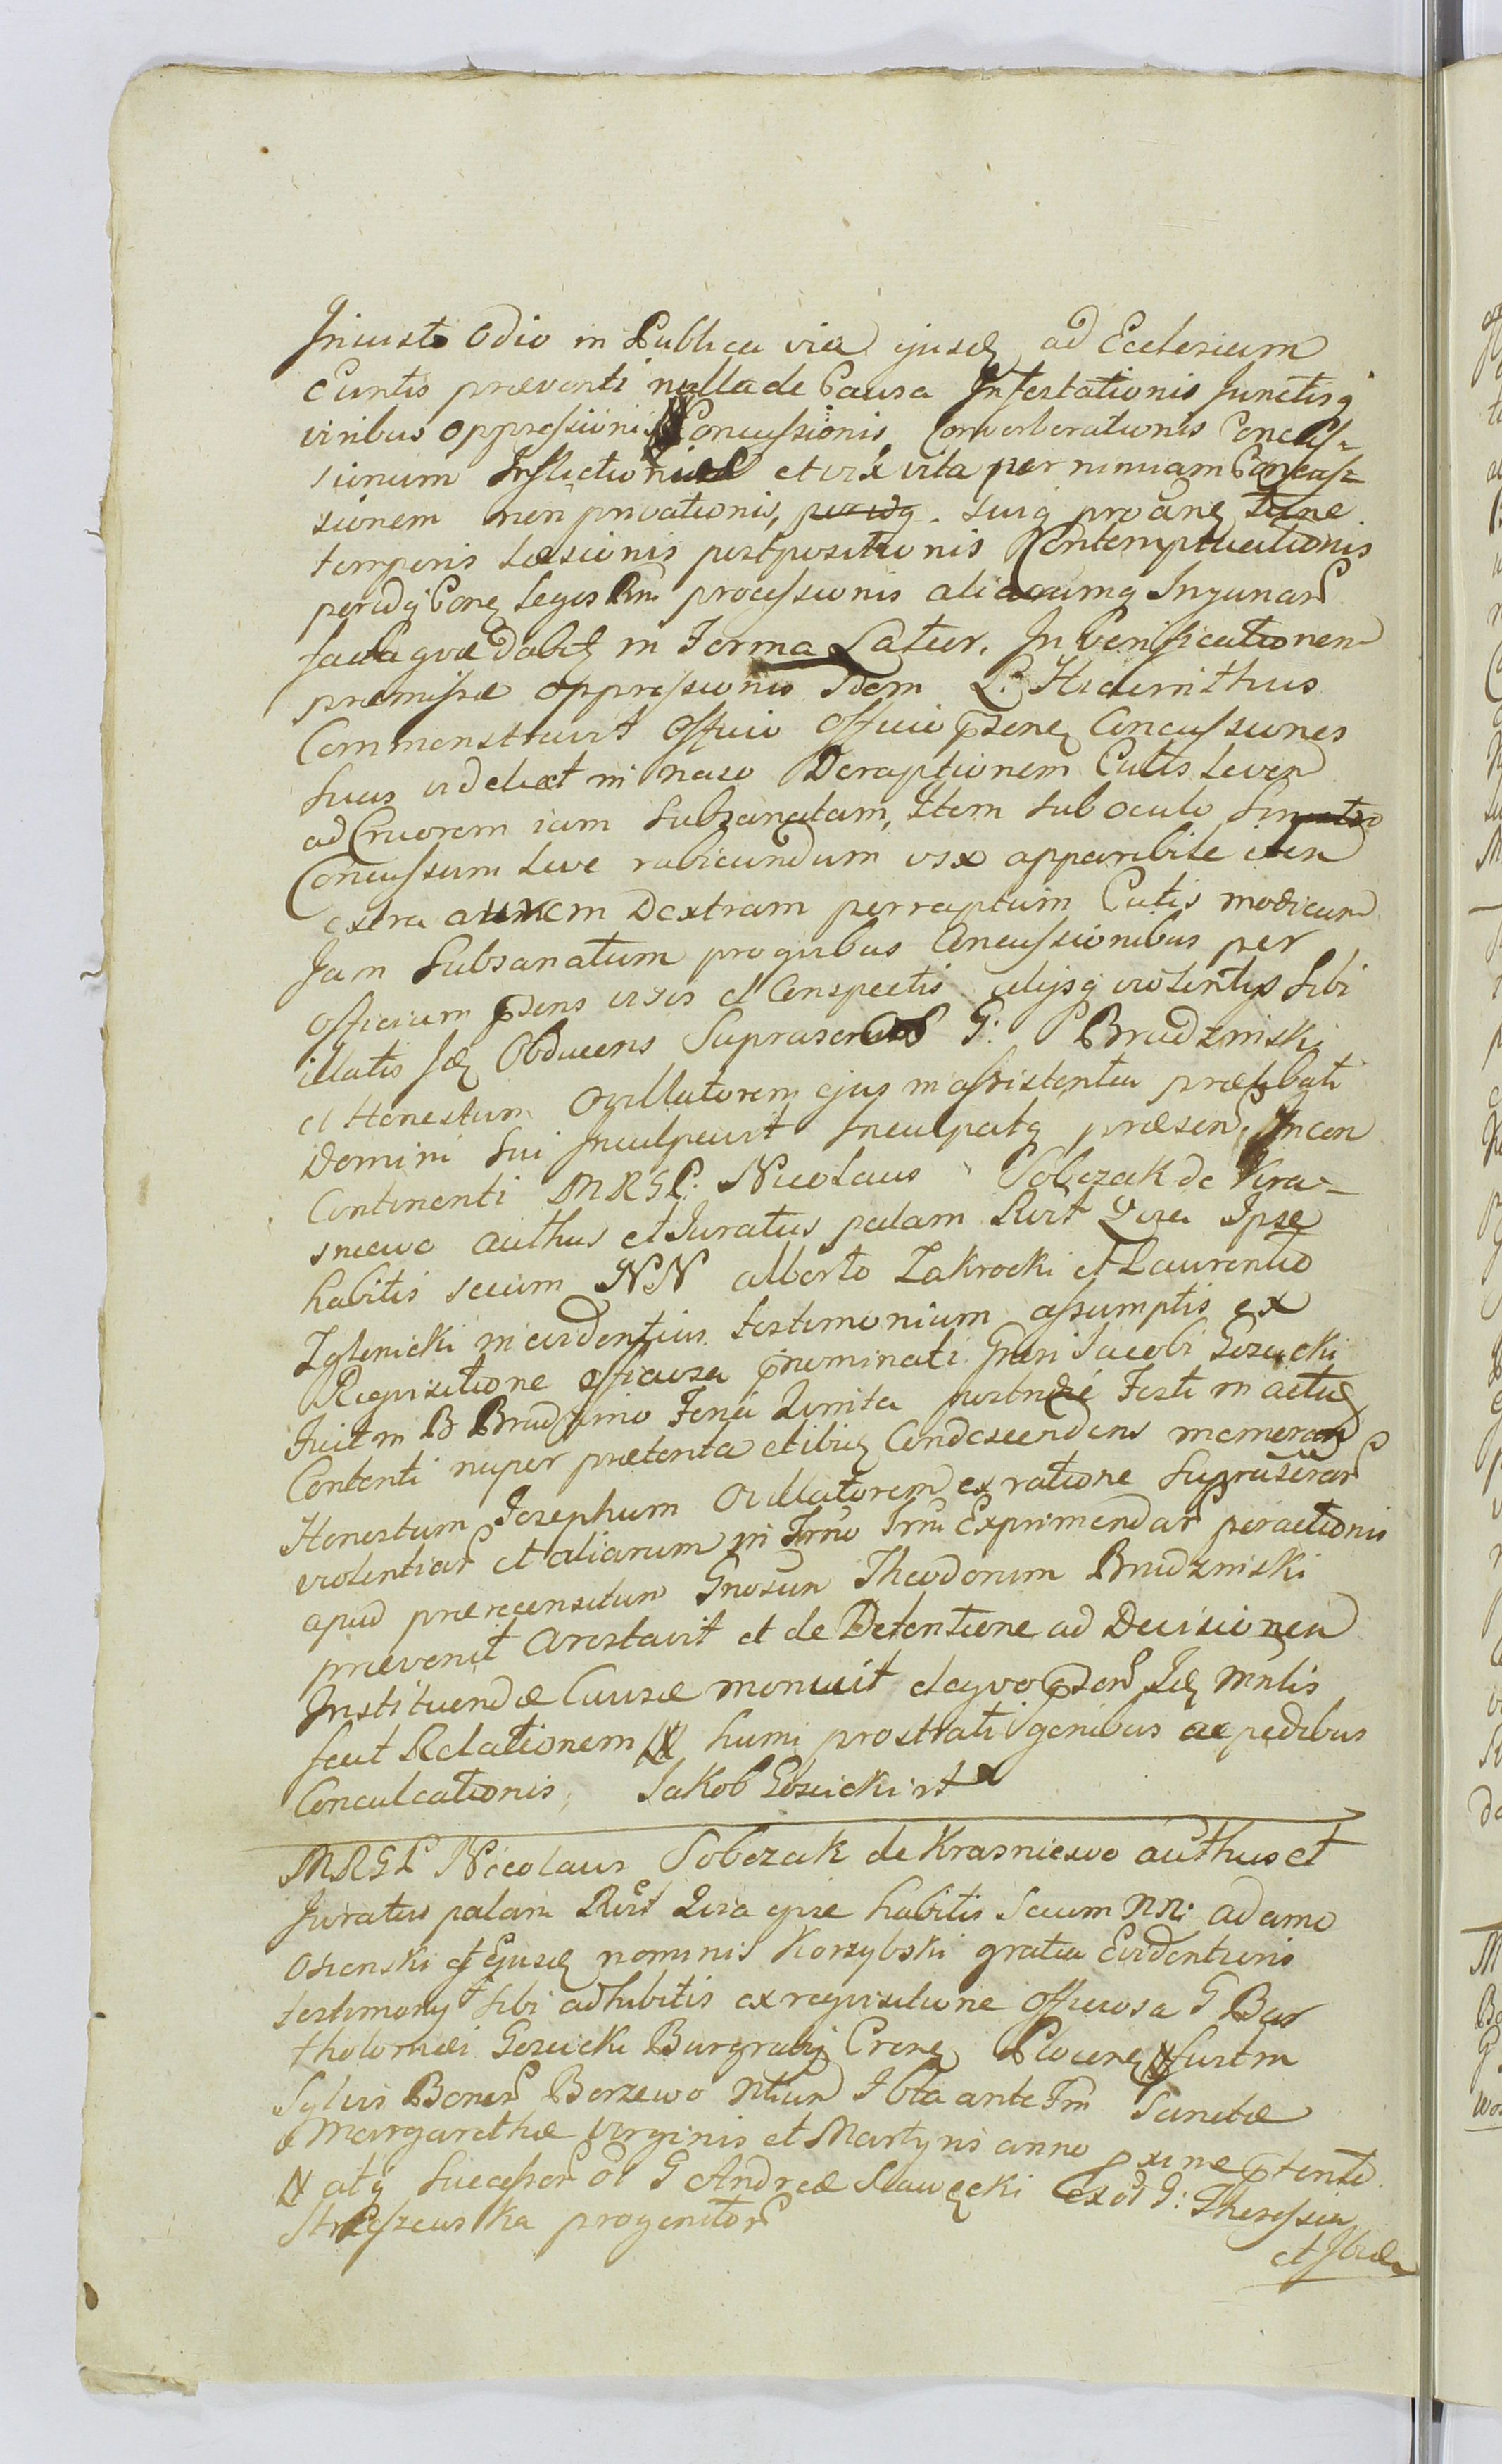 Iniusto Odio in Publica via ejusdẽ ad Ecclesiam
Euntis præventi nulla de Causa Infestationis Junctisq
viribus oppressionis Concussionis, Converberationis Concus=
sionum Inflictionis et vix vita per nimiam Concus=
sionem non privationis, suiq pro tunc
temporis Læsionis postpositionis Contemptuationis
Legis processionis aliarumq Injuriar
in Forma Latur. In Verificationem
præmissæ oppressionis Idem L. Hiacinthus
Commonstravit Officio Officio Concussiones
suas videlicet in naso Deraptionem Cutis Levem
ad Cruorem iam Subsanatam, Item sub oculo sinistro
Concussum Leve rubicundum vix apparibile item
extra aurem Dextram perraptum Cutis modicum
Jam Subsanatum proquibus Concussionibus per
Officium visis et Conspectis alijsq violentijs sibi
illatis Obducens G: Brudzinski
et Honestum Ozillatorem ejus in assistentia prælibati
Domini sui Inculpavit Inculpatq præsen Incon
Continenti MRGL: Nicolaus Sobczak de Kra-
sniewo authus et Juratus palam Rvit Quia Ipse
habitis secum NN Alberto Zakrocki et Laurentio
Zglenicki in evidentius testimonium assumptis ex
Requisitione officiosa Jacobi Gosicki
Fuit in B Brudzino Feria Quinta Festi in actu
Contenti nuper præterita et ibiq Condescendens memorat
Honestum Josephum Ozillatorem ex ratione
violentiar et aliarum in Trno Trni Exprimendar peractionis
apud prærecensitum Gnosum Theodorum Brudzinski
prævenit Arestavit et de Detentione ad Decisionem
Instituendæ Causæ monuit de quo
fecit Relationem humi prostrati genibus ac pedibus
Conculcationis, Jakob Gosicki
MRGL Nicolaus Sobczak de Krasniewo authus et
Juratus palam Rvit Quia ipse habitis Secum NN: Adamo
Osienski et Ejusdẽ nominis Korzybski gratia Evidentioris
testimony sibi adhibitis ex requisitione officiosa G Bar
tholomæi Gosicki Burgrabij Crenẽ Plocenẽ fuit in
Sylvis Boner Borzewo Ibta ante Fm Sanctæ
Margarethæ Virginis et Martyris anno
atq Successor G Andreæ Slawęcki G: Theressia
progenitor
et Ibidẽ